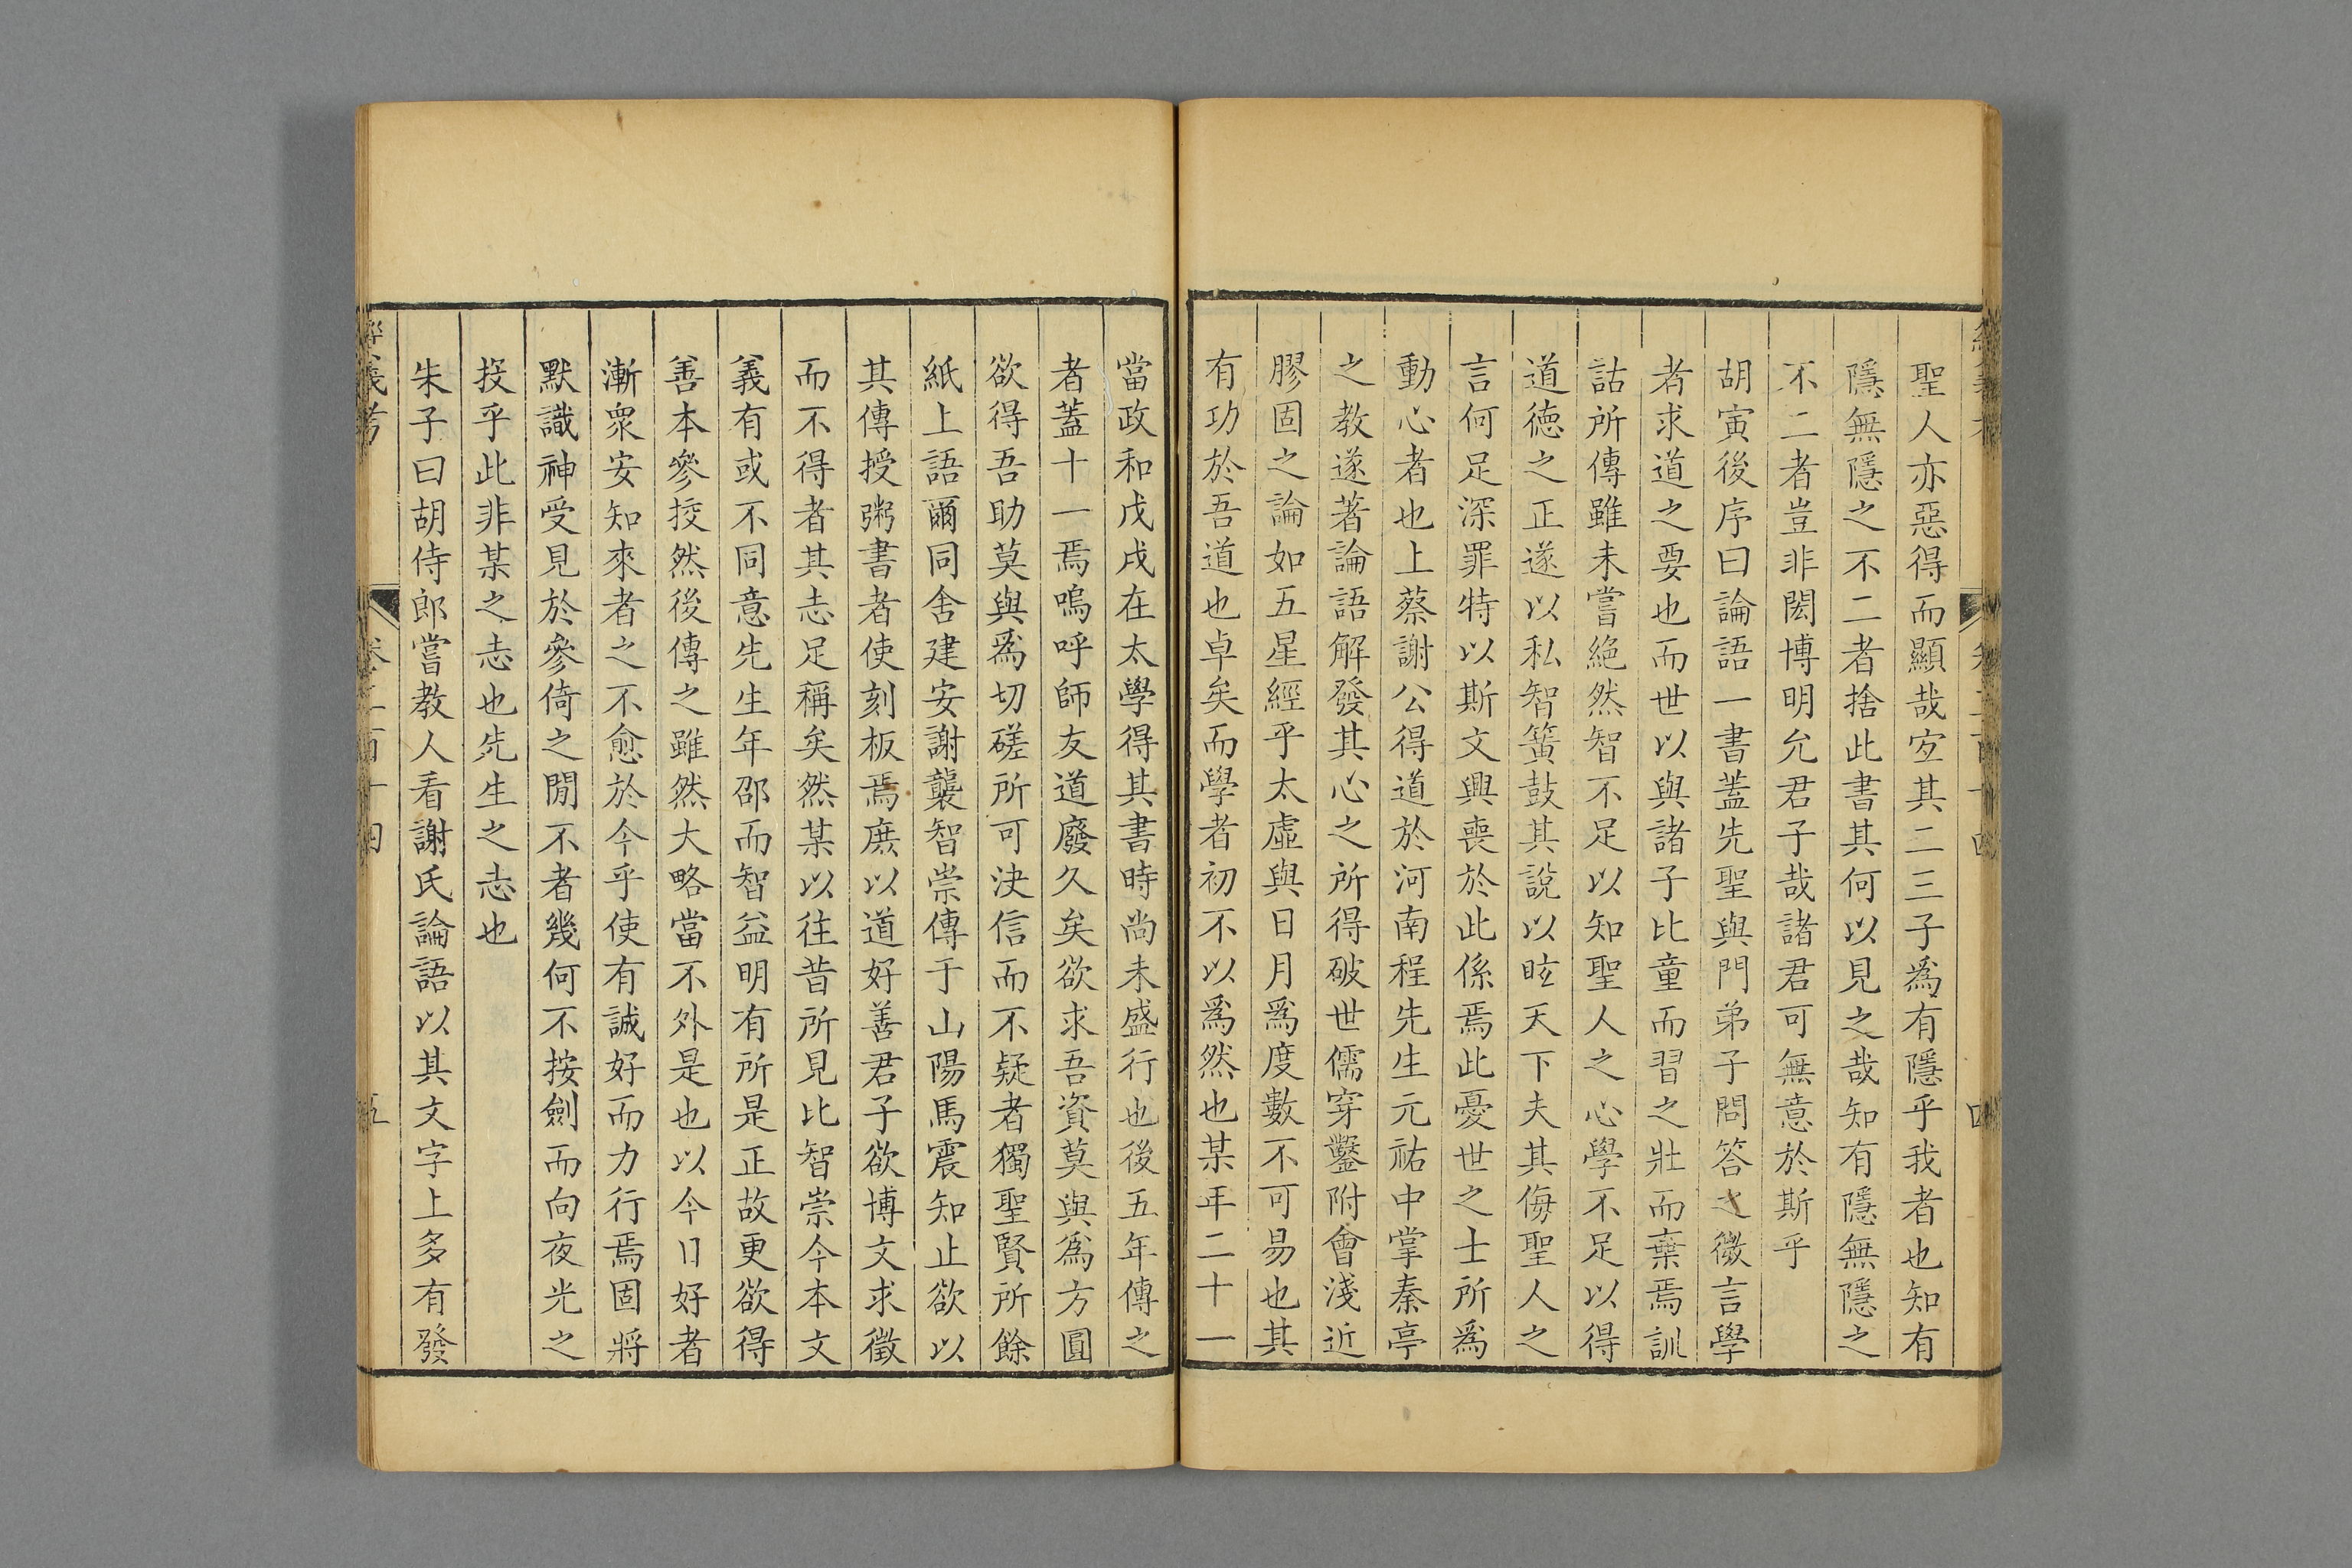 聖人亦惡得而顯哉宜其二三子爲有隱乎我者也知有
隱無隱之不二者捨此書其何以見之哉知有隱無隱之
不二者豈非閎博明允君子哉諸君可無意於斯乎
胡寅後序曰論語一書蓋先聖與門弟子問答之微言學
者求道之要也而世以與諸子比童而習之壯而棄焉訓
詁所傳雖未嘗絕然智不足以知聖人之心學不足以得
道德之正遂以私智簧鼓其說以眩天下夫其侮聖人之
言何足深罪特以斯文興喪於此係焉此憂世之士所爲
動心者也上蔡謝公得道於河南程先生元祐中掌秦亭
之教遂著論語解發其心之所得破世儒穿鑿附會淺近
膠固之論如五星經乎太虛與日月爲度數不可易也其
有功於吾道也卓矣而學者初不以爲然也某年二十一
當政和戊戌在太學得其書時尚未盛行也後五年傳之
者蓋十一焉嗚呼師友道廢久矣欲求吾資莫與爲方圓
欲得吾助莫與爲切磋所可決信而不疑者獨聖賢所餘
紙上語爾同舍建安謝襲智崇傳于山陽馬震知止欲以
其傳授粥書者使刻板焉庶以道好善君子欲博文求徵
而不得者其志足稱矣然某以往昔所見比智崇今本文
義有或不同意先生年邵而智益明有所是正故更欲得
善本參挍然後傳之雖然大略當不外是也以今日好者
漸衆安知來者之不愈於今乎使有誠好而力行焉固將
默識神受見於參倚之閒不者幾何不按劍而向夜光之
投乎此非某之志也先生之志也
朱子曰胡侍郎嘗教人看謝氏論語以其文字上多有發
經義考 卷二百十四 五